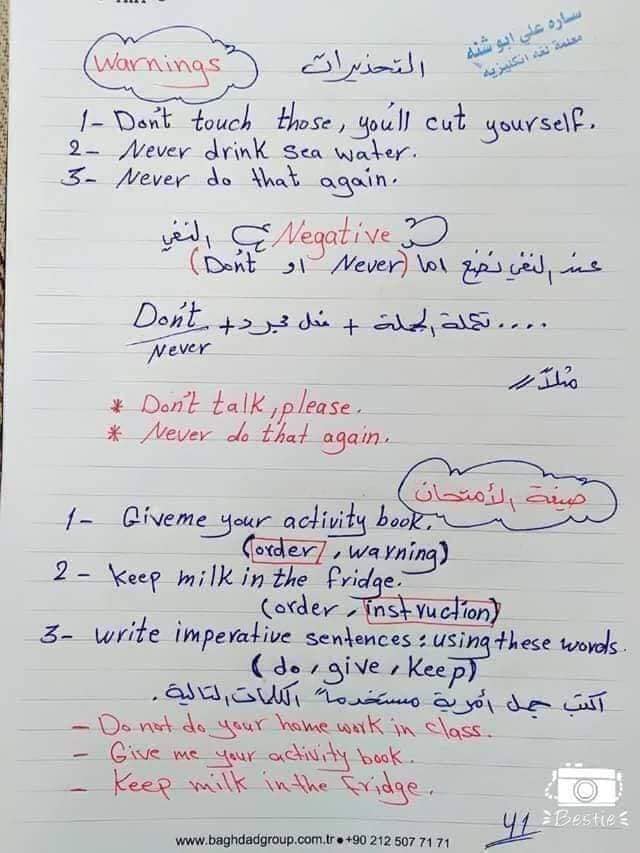 ساره علي ابو شنه
معلمة لغه انكليزيه
Warnings التحذيرات
1- Don't touch those, you'll cut yourself.
2- Never drink sea water.
3- Never do that again.
Negative النفي
عند النفي نضع اما (Never او Don't)
Don't / Never + فعل مجرد + تكملة الجملة ....
مثلاً //
* Don't talk, please.
* Never do that again.
صيغة الأمتحان
1- Give me your activity book.
(order, warning)
2- Keep milk in the fridge.
(order, instruction)
3- write imperative sentences: using these words.
(do, give, Keep)
اكتب جمل أمرية مستخدماً الكلمات التالية.
- Do not do your home work in class.
- Give me your activity book.
- Keep milk in the fridge.
41
Bestie
www.baghdadgroup.com.tr • +90 212 507 71 71